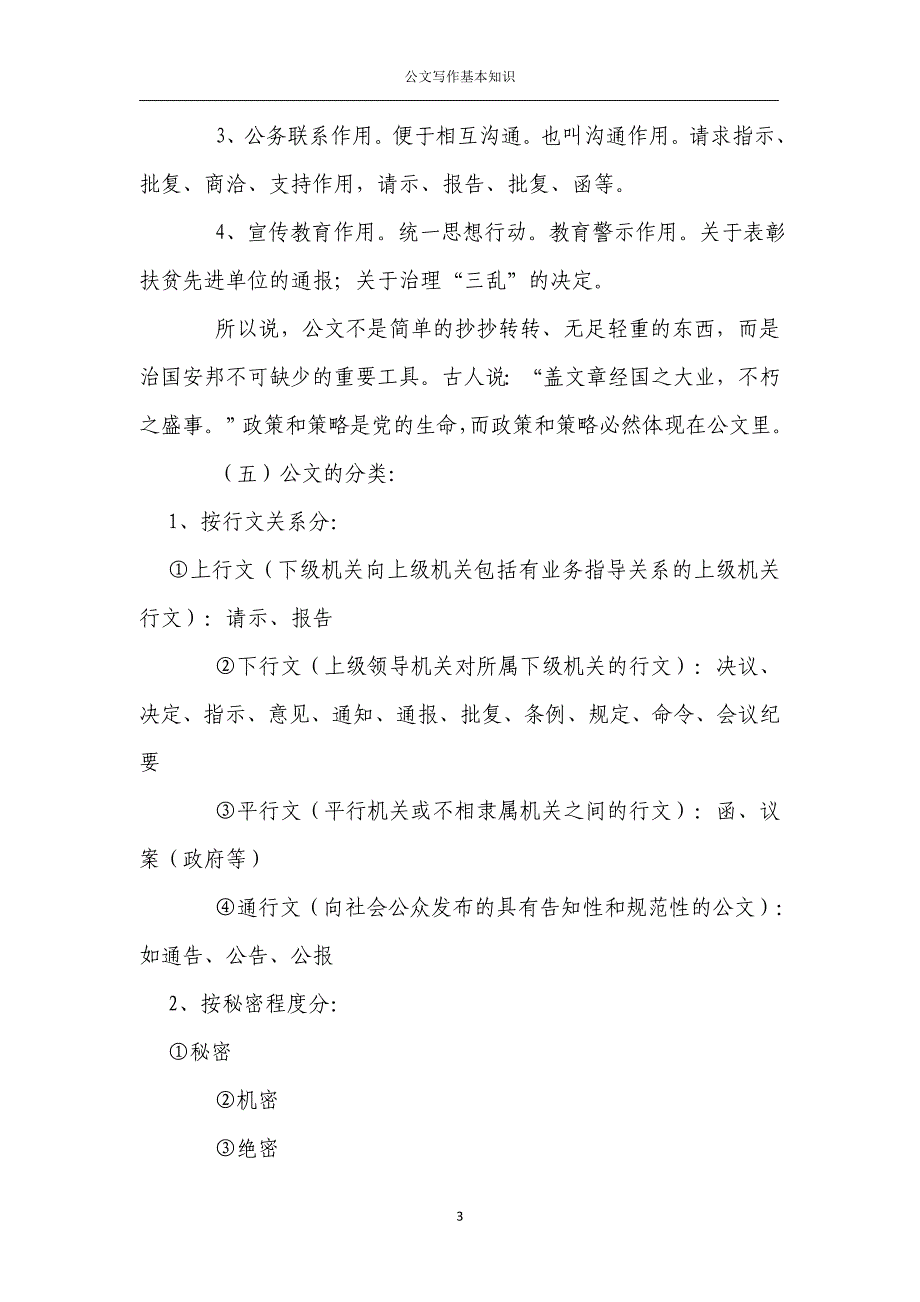 公文写作基本知识
3、公务联系作用。便于相互沟通。也叫沟通作用。请求指示、
批复、商洽、支持作用，请示、报告、批复、函等。
4、宣传教育作用。统一思想行动。教育警示作用。关于表彰
扶贫先进单位的通报；关于治理“三乱”的决定。
所以说，公文不是简单的抄抄转转、无足轻重的东西，而是
治国安邦不可缺少的重要工具。古人说：“盖文章经国之大业，不朽
之盛事。”政策和策略是党的生命，而政策和策略必然体现在公文里。
（五）公文的分类：
1、按行文关系分：
①上行文（下级机关向上级机关包括有业务指导关系的上级机关
行文）：请示、报告
②下行文（上级领导机关对所属下级机关的行文）：决议、
决定、指示、意见、通知、通报、批复、条例、规定、命令、会议纪
要
③平行文（平行机关或不相隶属机关之间的行文）：函、议
案（政府等）
④通行文（向社会公众发布的具有告知性和规范性的公文）：
如通告、公告、公报
2、按秘密程度分：
①秘密
②机密
③绝密
3